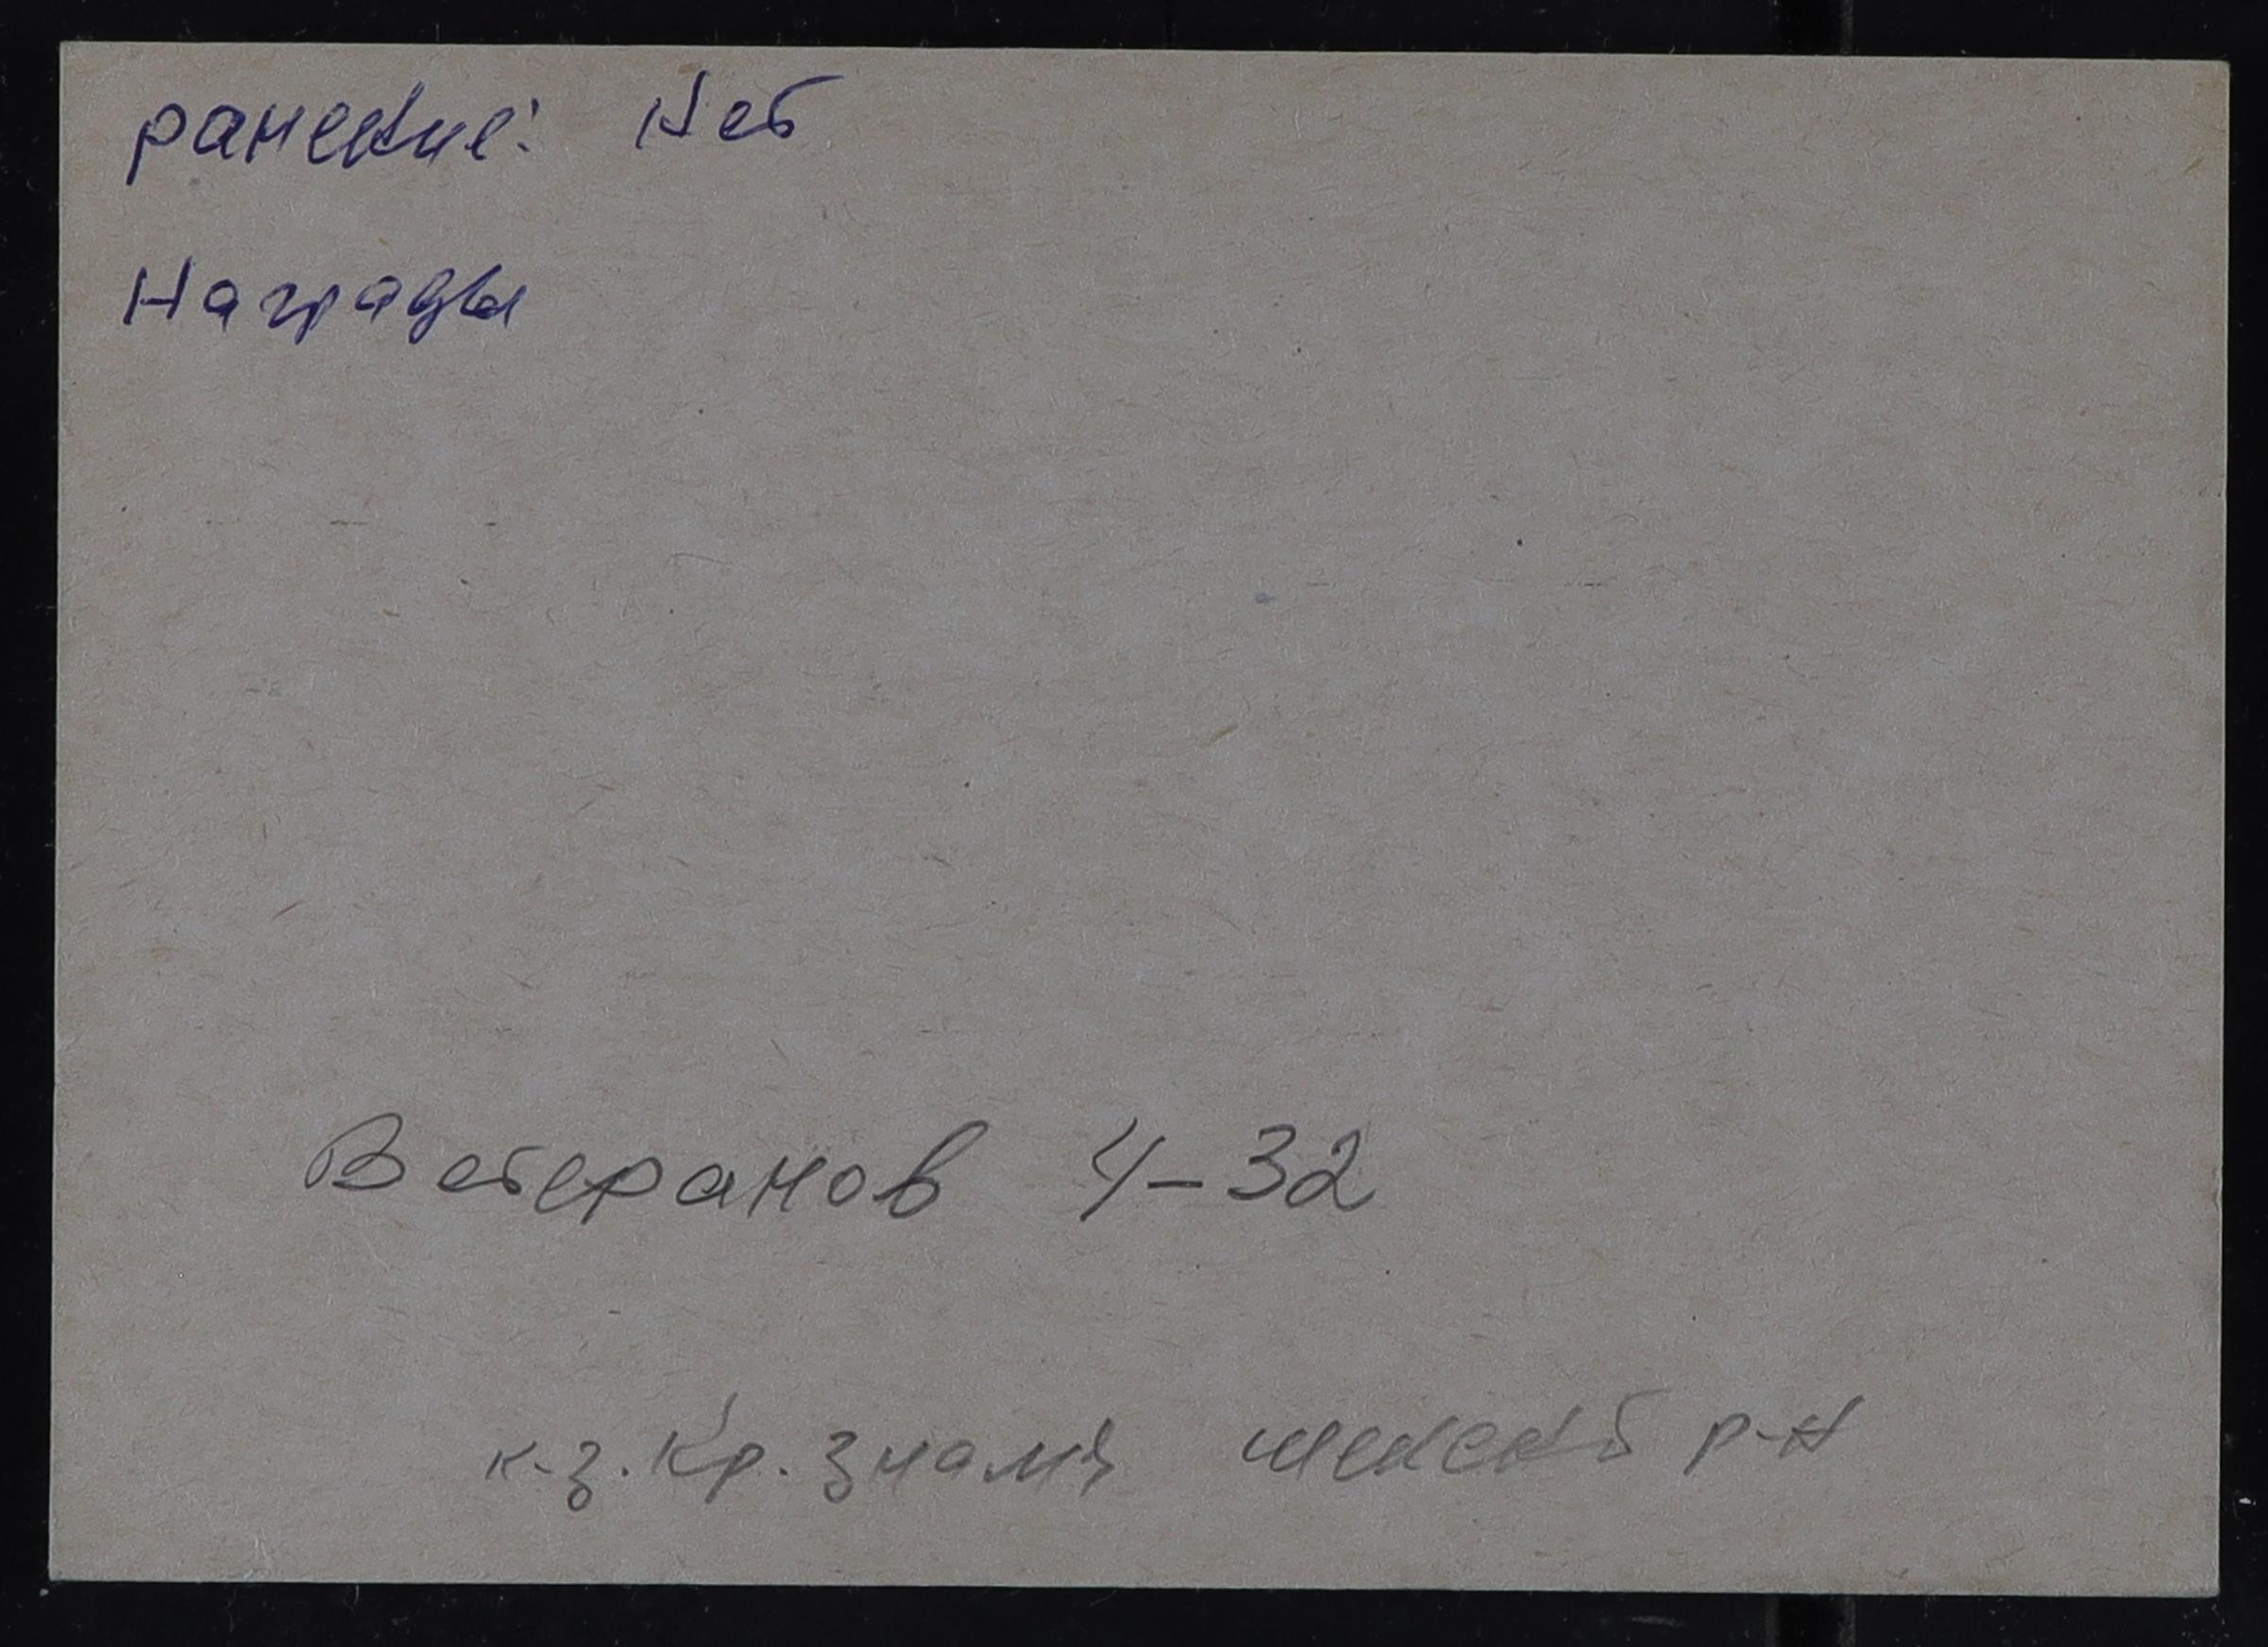 ранение: Нет
Награды
Ветеранов 4-32
к-з. Кр. знамя р-н